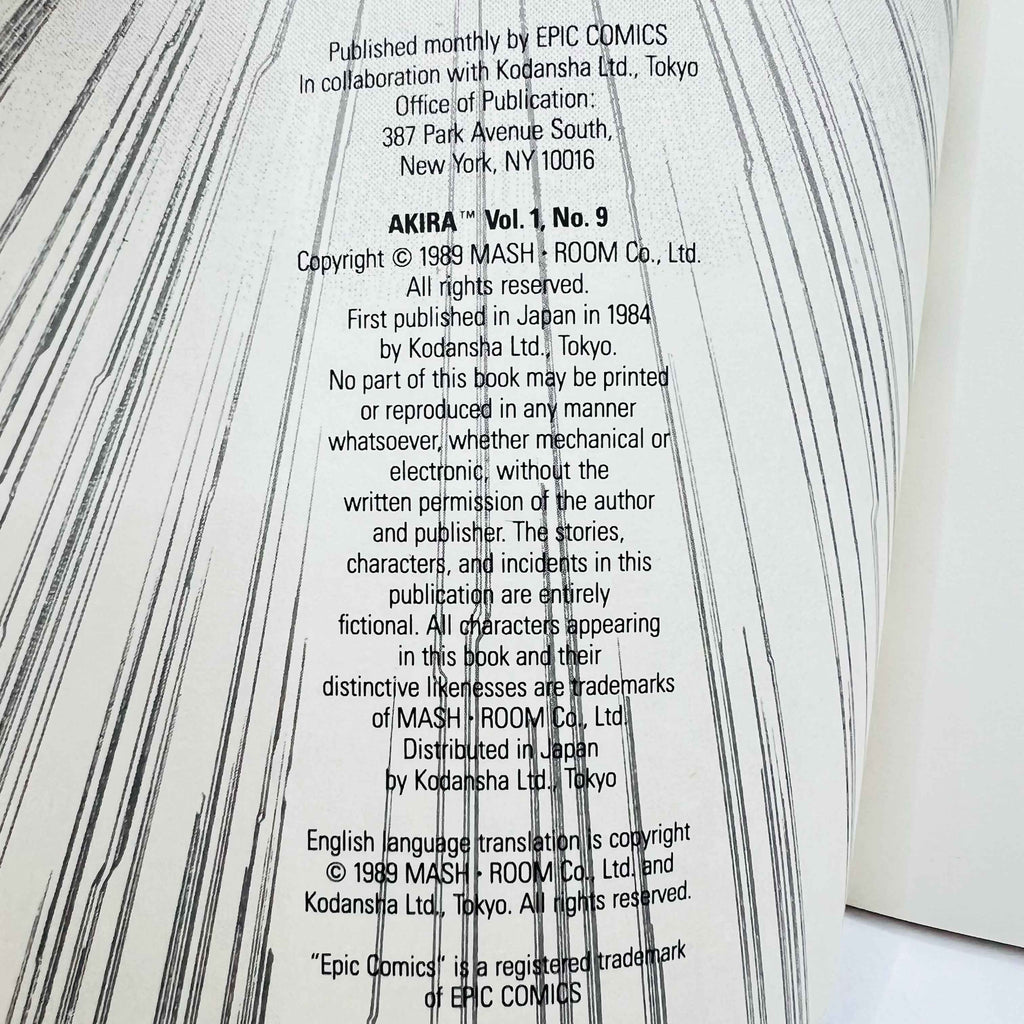 Published monthly by EPIC COMICS
In collaboration with Kodansha Ltd., Tokyo
Office of Publication:
387 Park Avenue South,
New York, NY 10016
AKIRA™ Vol. 1, No. 9
Copyright © 1989 MASH • ROOM Co., Ltd.
All rights reserved.
First published in Japan in 1984
by Kodansha Ltd., Tokyo.
No part of this book may be printed
or reproduced in any manner
whatsoever, whether mechanical or
electronic, without the
written permission of the author
and publisher. The stories,
characters, and incidents in this
publication are entirely
fictional. All characters appearing
in this book and their
distinctive likenesses are trademarks
of MASH • ROOM Co., Ltd.
Distributed in Japan
by Kodansha Ltd., Tokyo
English language translation is copyright
© 1989 MASH • ROOM Co., Ltd. and
Kodansha Ltd., Tokyo. All rights reserved.
"Epic Comics" is a registered trademark
of EPIC COMICS